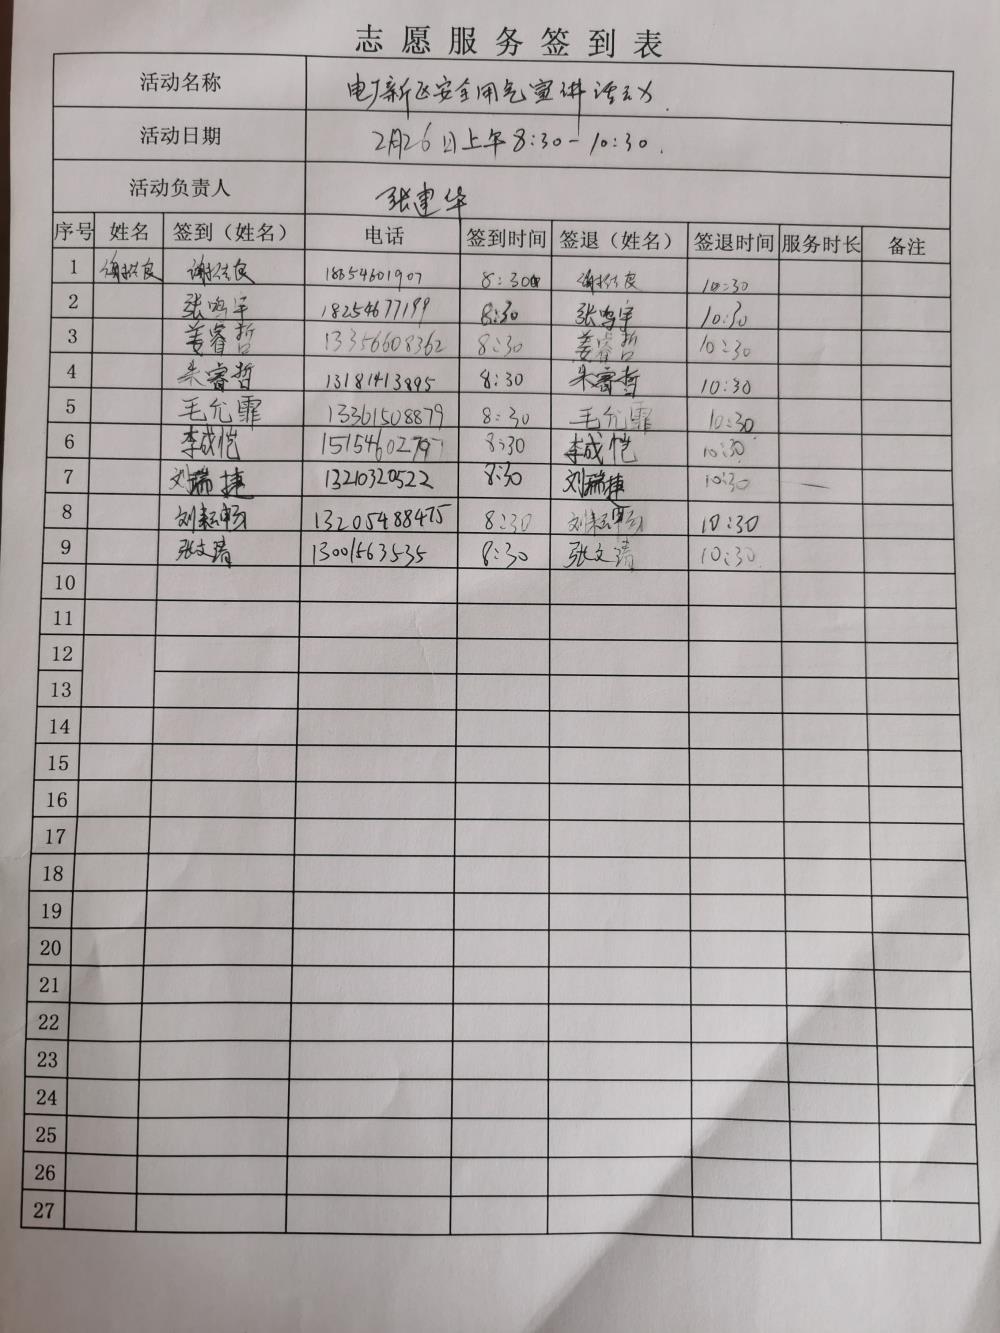 志愿服务签到表
活动名称 电厂新区安全用气宣讲活动
活动日期 2月26日上午8:30-10:30.
活动负责人 张建华
序号 姓名 签到（姓名） 电话 签到时间 签退（姓名） 签退时间 服务时长 备注
1 18654601907 8:30 10:30
2 张鸣宇 18254677199 8:30 张鸣宇 10:30
3 姜睿哲 13356608362 8:30 姜睿哲 10:30
4 朱睿哲 13181413895 8:30 朱睿哲 10:30
5 毛允霏 13361508879 8:30 毛允霏 10:30
6 李成恺 15154602797 8:30 李成恺 10:30
7 刘瑞捷 13210320522 8:30 刘瑞捷 10:30 —
8 刘耘畅 13205488475 8:30 刘耘畅 10:30
9 张文清 13001563535 8:30 张文清 10:30
10
11
12
13
14
15
16
17
18
19
20
21
22
23
24
25
26
27